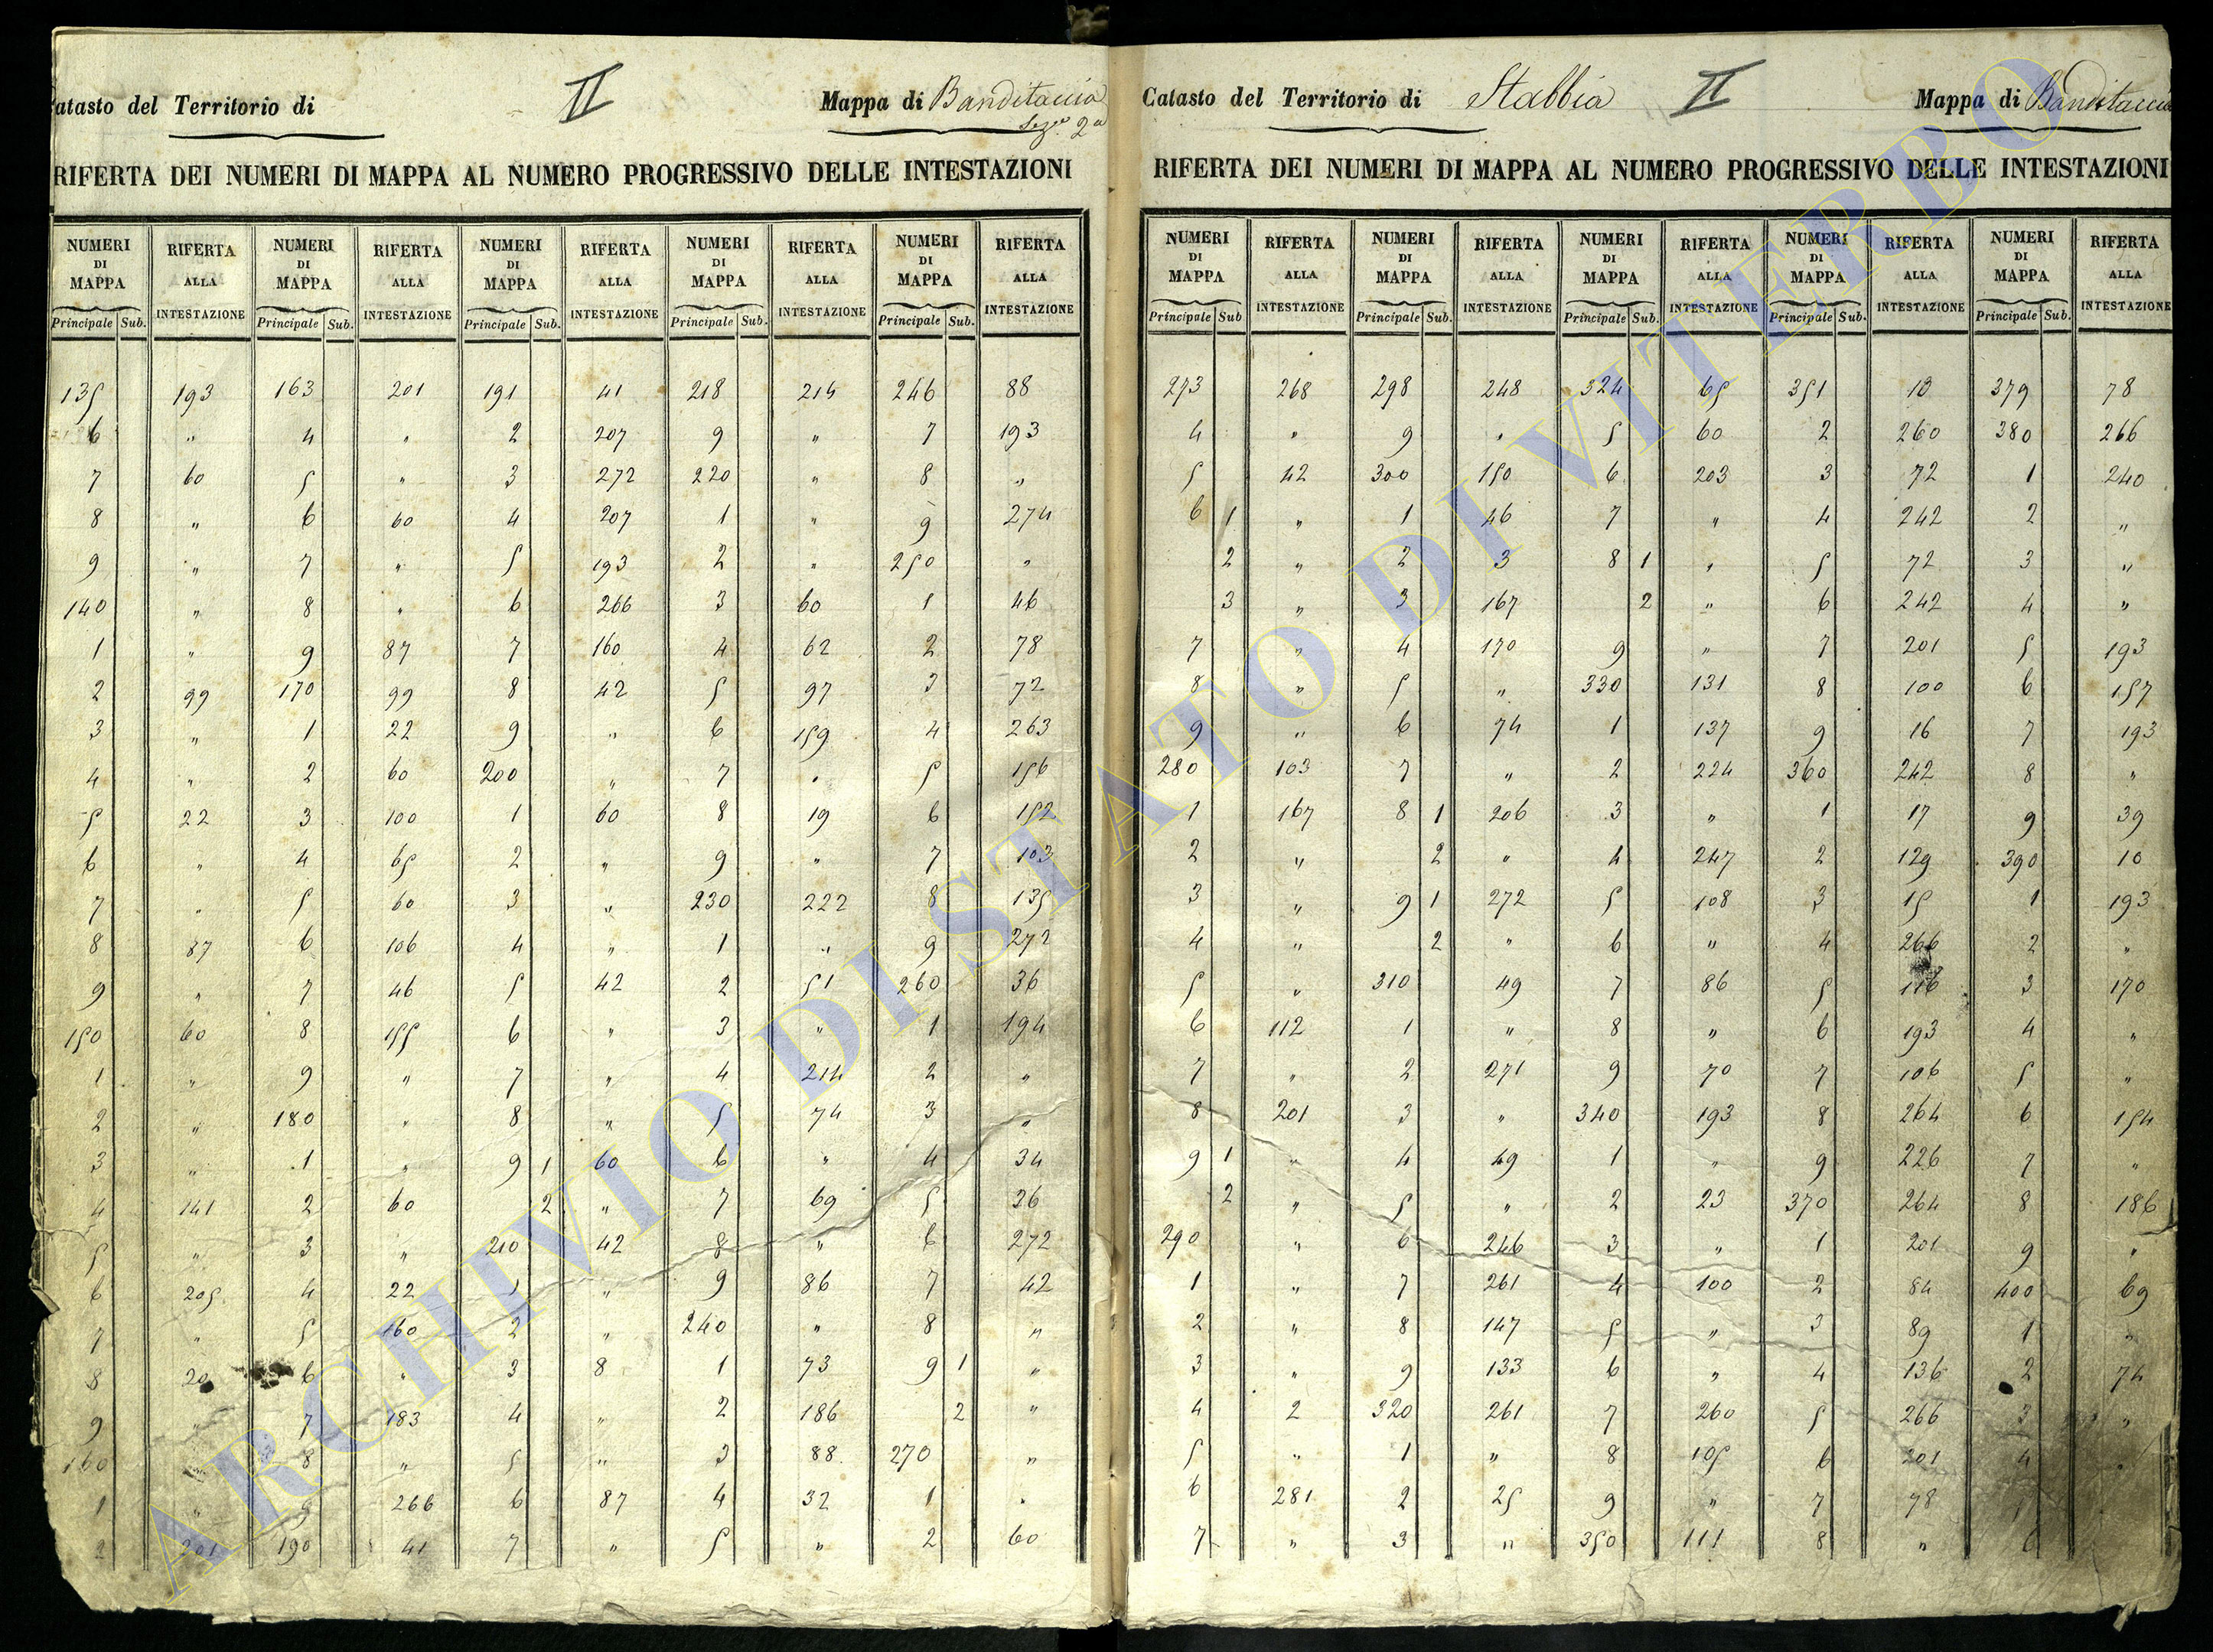 Catasto del Territorio di II Mappa di Banditaccia
Sez.e 2a
RIFERTA DEI NUMERI DI MAPPA AL NUMERO PROGRESSIVO DELLE INTESTAZIONI
NUMERI DI MAPPA RIFERTA ALLA INTESTAZIONE NUMERI DI MAPPA RIFERTA ALLA INTESTAZIONE NUMERI DI MAPPA RIFERTA ALLA INTESTAZIONE NUMERI DI MAPPA RIFERTA ALLA INTESTAZIONE NUMERI DI MAPPA RIFERTA ALLA INTESTAZIONE
Principale Sub. Principale Sub. Principale Sub. Principale Sub. Principale Sub.
135 193 163 201 191 41 218 214 246 88
6 " 4 " 2 207 9 " 7 193
7 60 5 " 3 272 220 " 8 "
8 " 6 60 4 207 1 " 9 274
9 " 7 " 5 193 2 " 250 "
140 " 8 " 6 266 3 60 1 46
1 " 9 87 7 160 4 62 2 78
2 99 170 99 8 42 5 97 3 72
3 " 1 22 9 " 6 159 4 263
4 " 2 60 200 " 7 " 5 156
5 22 3 100 1 60 8 19 6 152
6 " 4 65 2 " 9 " 7 103
7 " 5 60 3 " 230 222 8 135
8 87 6 106 4 " 1 " 9 272
9 " 7 46 5 42 2 51 260 36
150 60 8 155 6 " 3 " 1 194
1 " 9 " 7 " 4 214 2 "
2 " 180 " 8 " 5 74 3 "
3 " 1 " 9 1 60 6 " 4 34
4 141 2 60 2 " 7 69 5 36
5 " 3 " 210 42 8 " 6 272
6 205 4 22 1 " 9 86 7 42
7 " 5 160 2 " 240 " 8 "
8 20 6 " 3 8 1 73 9 1 "
9 " 7 183 4 " 2 186 2 "
160 8 " 5 " 3 88 270 "
1 " 9 266 6 87 4 32 1 "
2 201 190 41 7 " 5 " 2 60
Catasto del Territorio di Stabbia II Mappa di Banditaccia
RIFERTA DEI NUMERI DI MAPPA AL NUMERO PROGRESSIVO DELLE INTESTAZIONI
NUMERI DI MAPPA RIFERTA ALLA INTESTAZIONE NUMERI DI MAPPA RIFERTA ALLA INTESTAZIONE NUMERI DI MAPPA RIFERTA ALLA INTESTAZIONE NUMERI DI MAPPA RIFERTA ALLA INTESTAZIONE NUMERI DI MAPPA RIFERTA ALLA INTESTAZIONE
Principale Sub Principale Sub. Principale Sub. Principale Sub. Principale Sub.
273 268 298 248 324 65 351 10 379 78
4 " 9 " 5 60 2 260 380 266
5 42 300 150 6 203 3 72 1 240
6 1 " 1 46 7 " 4 242 2 "
2 " 2 3 8 1 " 5 72 3 "
3 " 3 167 2 " 6 242 4 "
7 " 4 170 9 " 7 201 5 193
8 " 5 " 330 131 8 100 6 157
9 " 6 74 1 137 9 16 7 193
280 103 7 " 2 224 360 242 8 "
1 167 8 1 206 3 " 1 17 9 39
2 " 2 " 4 247 2 129 390 10
3 " 9 1 272 5 108 3 15 1 193
4 " 2 " 6 " 4 266 2 "
5 " 310 49 7 86 5 116 3 170
6 112 1 " 8 " 6 193 4 "
7 " 2 271 9 70 7 106 5 "
8 201 3 " 340 193 8 264 6 154
9 1 " 4 49 1 " 9 226 7 "
2 " 5 " 2 23 370 264 8 186
290 " 6 246 3 " 1 201 9 "
1 " 7 261 4 100 2 84 400 69
2 " 8 147 5 " 3 89 1 "
3 " 9 133 6 " 4 136 2 74
4 2 320 261 7 260 5 266 3 "
5 " 1 " 8 105 6 201 4 "
6 281 2 25 9 " 7 78
7 " 3 " 350 111 8 " 6
ARCHIVIO DI STATO DI VITERBO